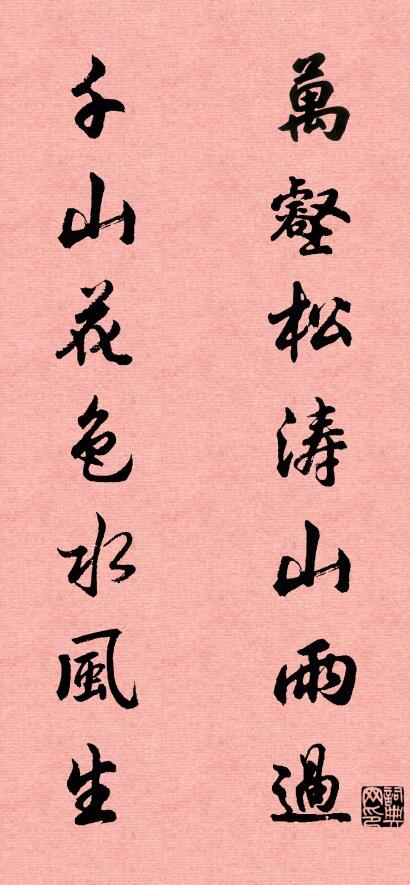 萬壑松涛山雨過
千山花色水風生
詞典网印